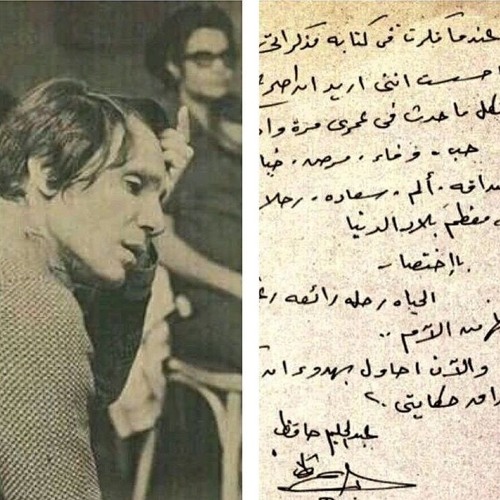 عندما فكرت في كتابه مذكراتي
احسست انني اريد ان اصر
كل ما حدث في عمرى مرة وا
حب . وفاء . مرض . خيا
داقه . ألم . سعاده . رحلا
معظم بلاد الدنيا
باختصار
الحياه رحله رائعه رغ
من الآلام ..
والآن احاول بهدوء ان
حكايتى ..
عبدالحليم حافظ